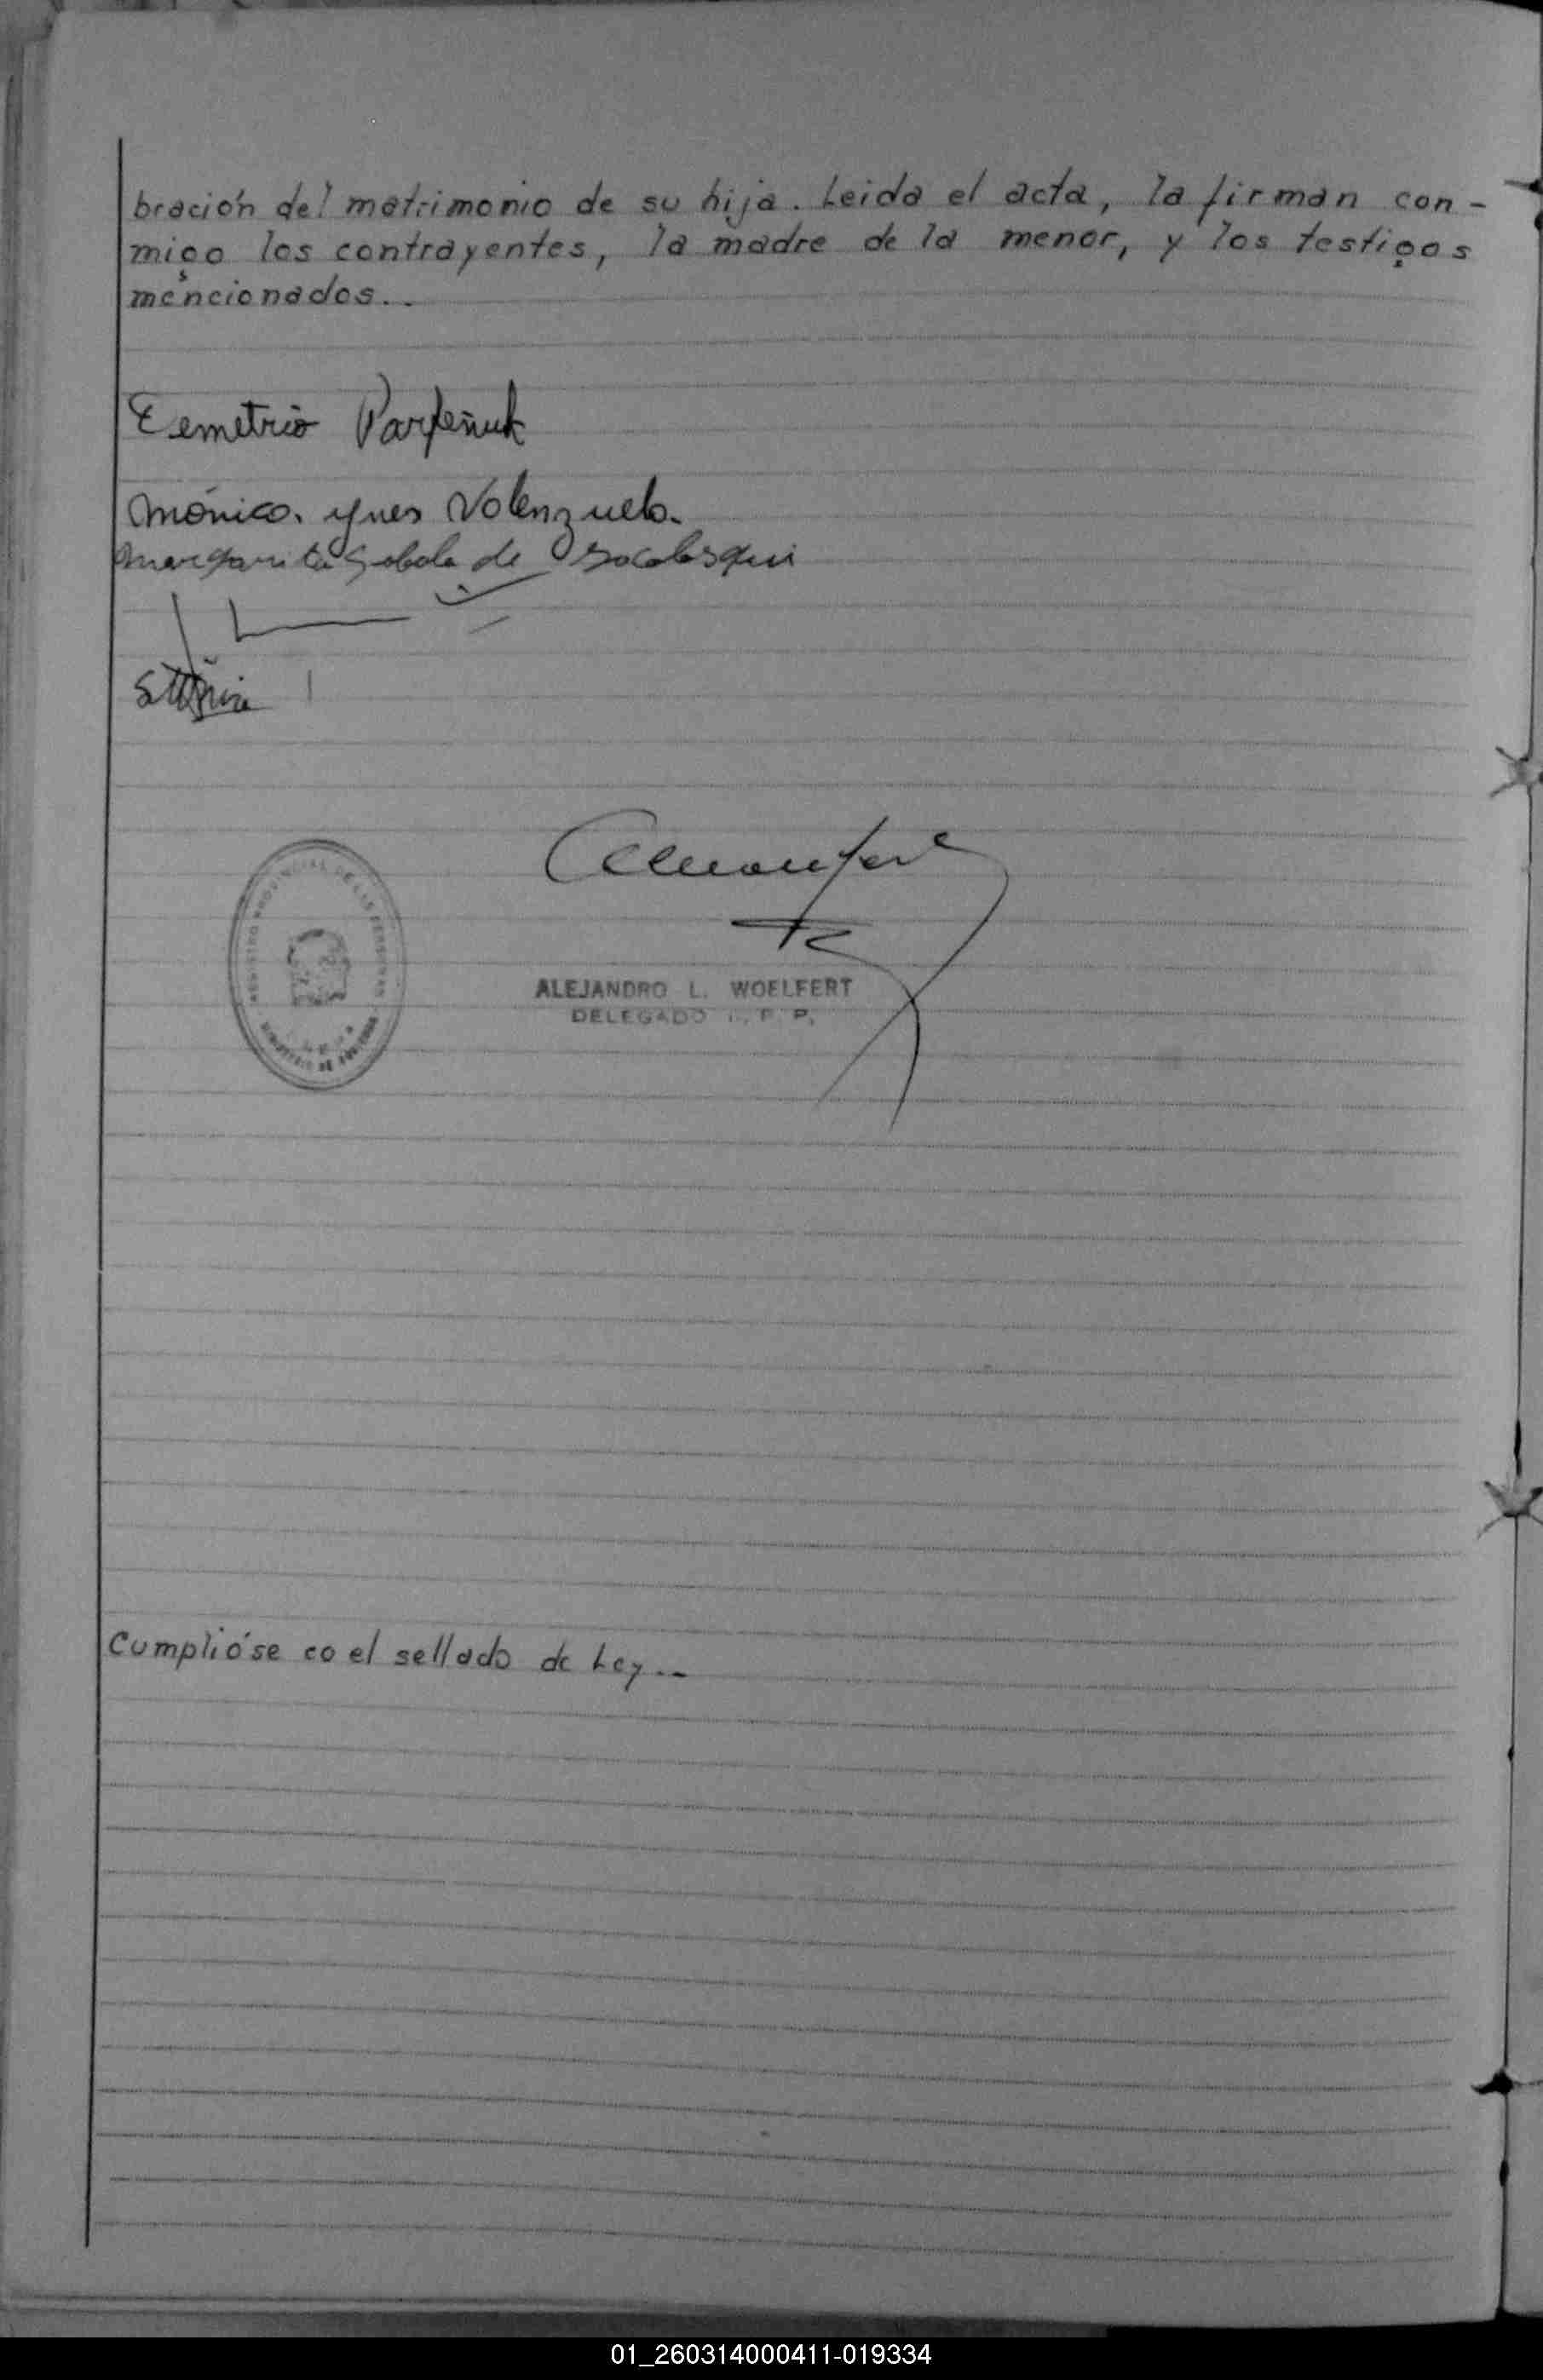 bración del matrimonio de su hija. Leida el acta, la firman con-
migo los contrayentes, la madre de la menor, y los testigos
mencionados..
Demetrio Parfeñuk
Mónica. Ynes Valenzuela.
Margarita de
REGISTRO PROVINCIAL DE LAS PERSONAS
ALEJANDRO L. WOELFERT
DELEGADO
Cumplióse co el sellado de Ley..-
01_260314000411-019334